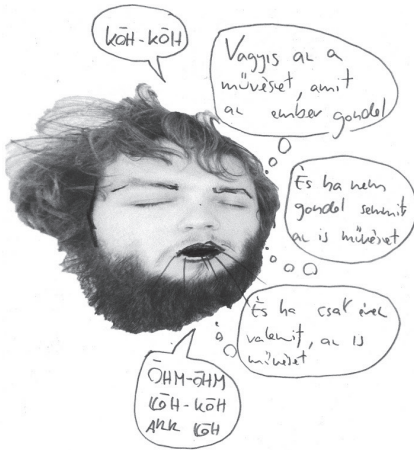 KŌH-KŌH
Vagyis az a
művészet, amit
az ember gondol
És ha nem
gondol semmit
az is művészet
És ha csak érez
valamit, az is
művészet
ŌHM-ŌHM
KŌH-KŌH
AKK KŌH